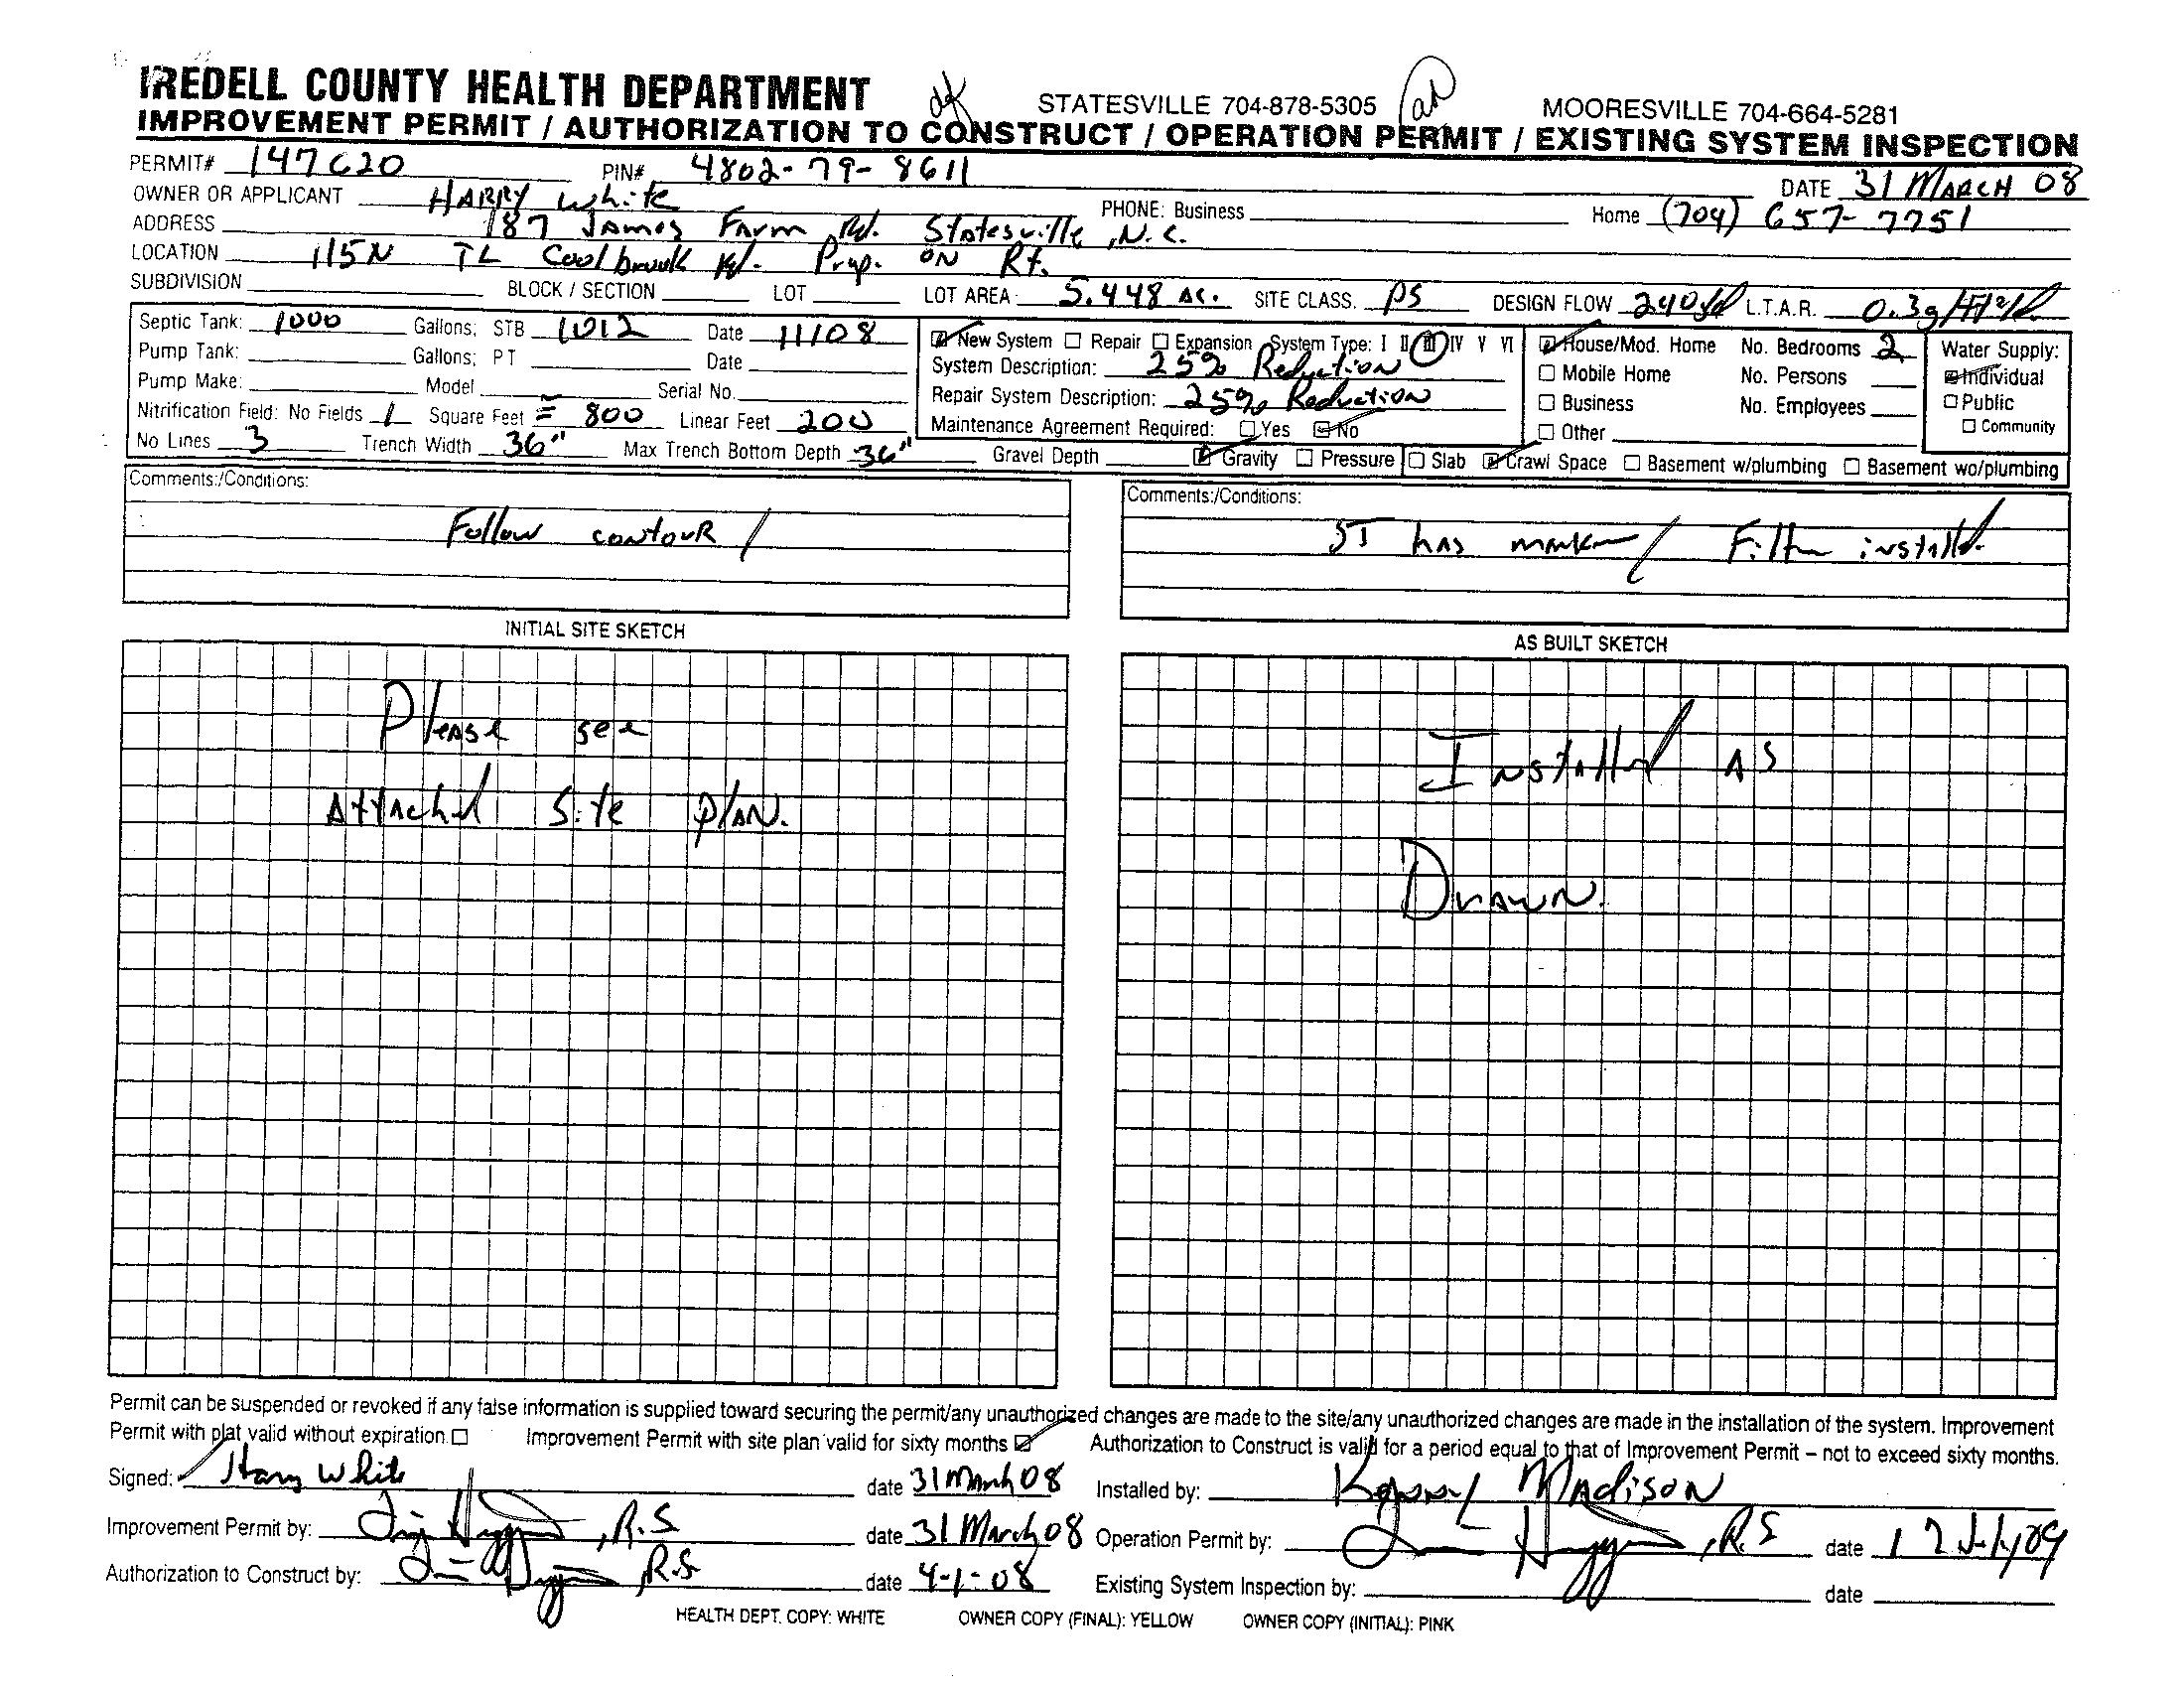 IREDELL COUNTY HEALTH DEPARTMENT STATESVILLE 704-878-5305 MOORESVILLE 704-664-5281
IMPROVEMENT PERMIT / AUTHORIZATION TO CONSTRUCT / OPERATION PERMIT / EXISTING SYSTEM INSPECTION
PERMIT# 147620 PIN# 4802-79-8611
OWNER OR APPLICANT HARRY White DATE 31 MARCH 08
ADDRESS 187 James Farm Rd. Statesville, N.C. PHONE: Business Home (704) 657-7751
LOCATION 115N TL Coolbrook Rd. Prop. ON Rt.
SUBDIVISION BLOCK / SECTION LOT LOT AREA 5.448 AC. SITE CLASS. PS DESIGN FLOW 240 gpd L.T.A.R. 0.3
Septic Tank: 1000 Gallons; STB 1012 Date 11/08
Pump Tank: Gallons; PT Date
Pump Make: Model Serial No.
Nitrification Field: No Fields 1 Square Feet ≅ 800 Linear Feet 200
No Lines 3 Trench Width 36" Max Trench Bottom Depth 36" Gravel Depth ☑ Gravity ☐ Pressure
☑ New System ☐ Repair ☐ Expansion System Type: I II III IV V VI
System Description: 25% Reduction
Repair System Description: 25% Reduction
Maintenance Agreement Required: ☐ Yes ☑ No
☑ House/Mod. Home No. Bedrooms 2
☐ Mobile Home No. Persons
☐ Business No. Employees
☐ Other
Water Supply:
☑ Individual
☐ Public
☐ Community
☐ Slab ☑ Crawl Space ☐ Basement w/plumbing ☐ Basement wo/plumbing
Comments:/Conditions:
Follow contour /
Comments:/Conditions:
ST has marker / Filter installed.
INITIAL SITE SKETCH
Please see
Attached Site plan.
AS BUILT SKETCH
Installed AS
Drawn.
Permit can be suspended or revoked if any false information is supplied toward securing the permit/any unauthorized changes are made to the site/any unauthorized changes are made in the installation of the system. Improvement
Permit with plat valid without expiration ☐ Improvement Permit with site plan valid for sixty months ☑ Authorization to Construct is valid for a period equal to that of Improvement Permit – not to exceed sixty months.
Signed: Harry White date 31 March 08 Installed by: Kenny Madison
Improvement Permit by: , R.S date 31 March 08 Operation Permit by: , R.S date 12 July 09
Authorization to Construct by: , R.S. date 4-1-08 Existing System Inspection by: date
HEALTH DEPT. COPY: WHITE OWNER COPY (FINAL): YELLOW OWNER COPY (INITIAL): PINK